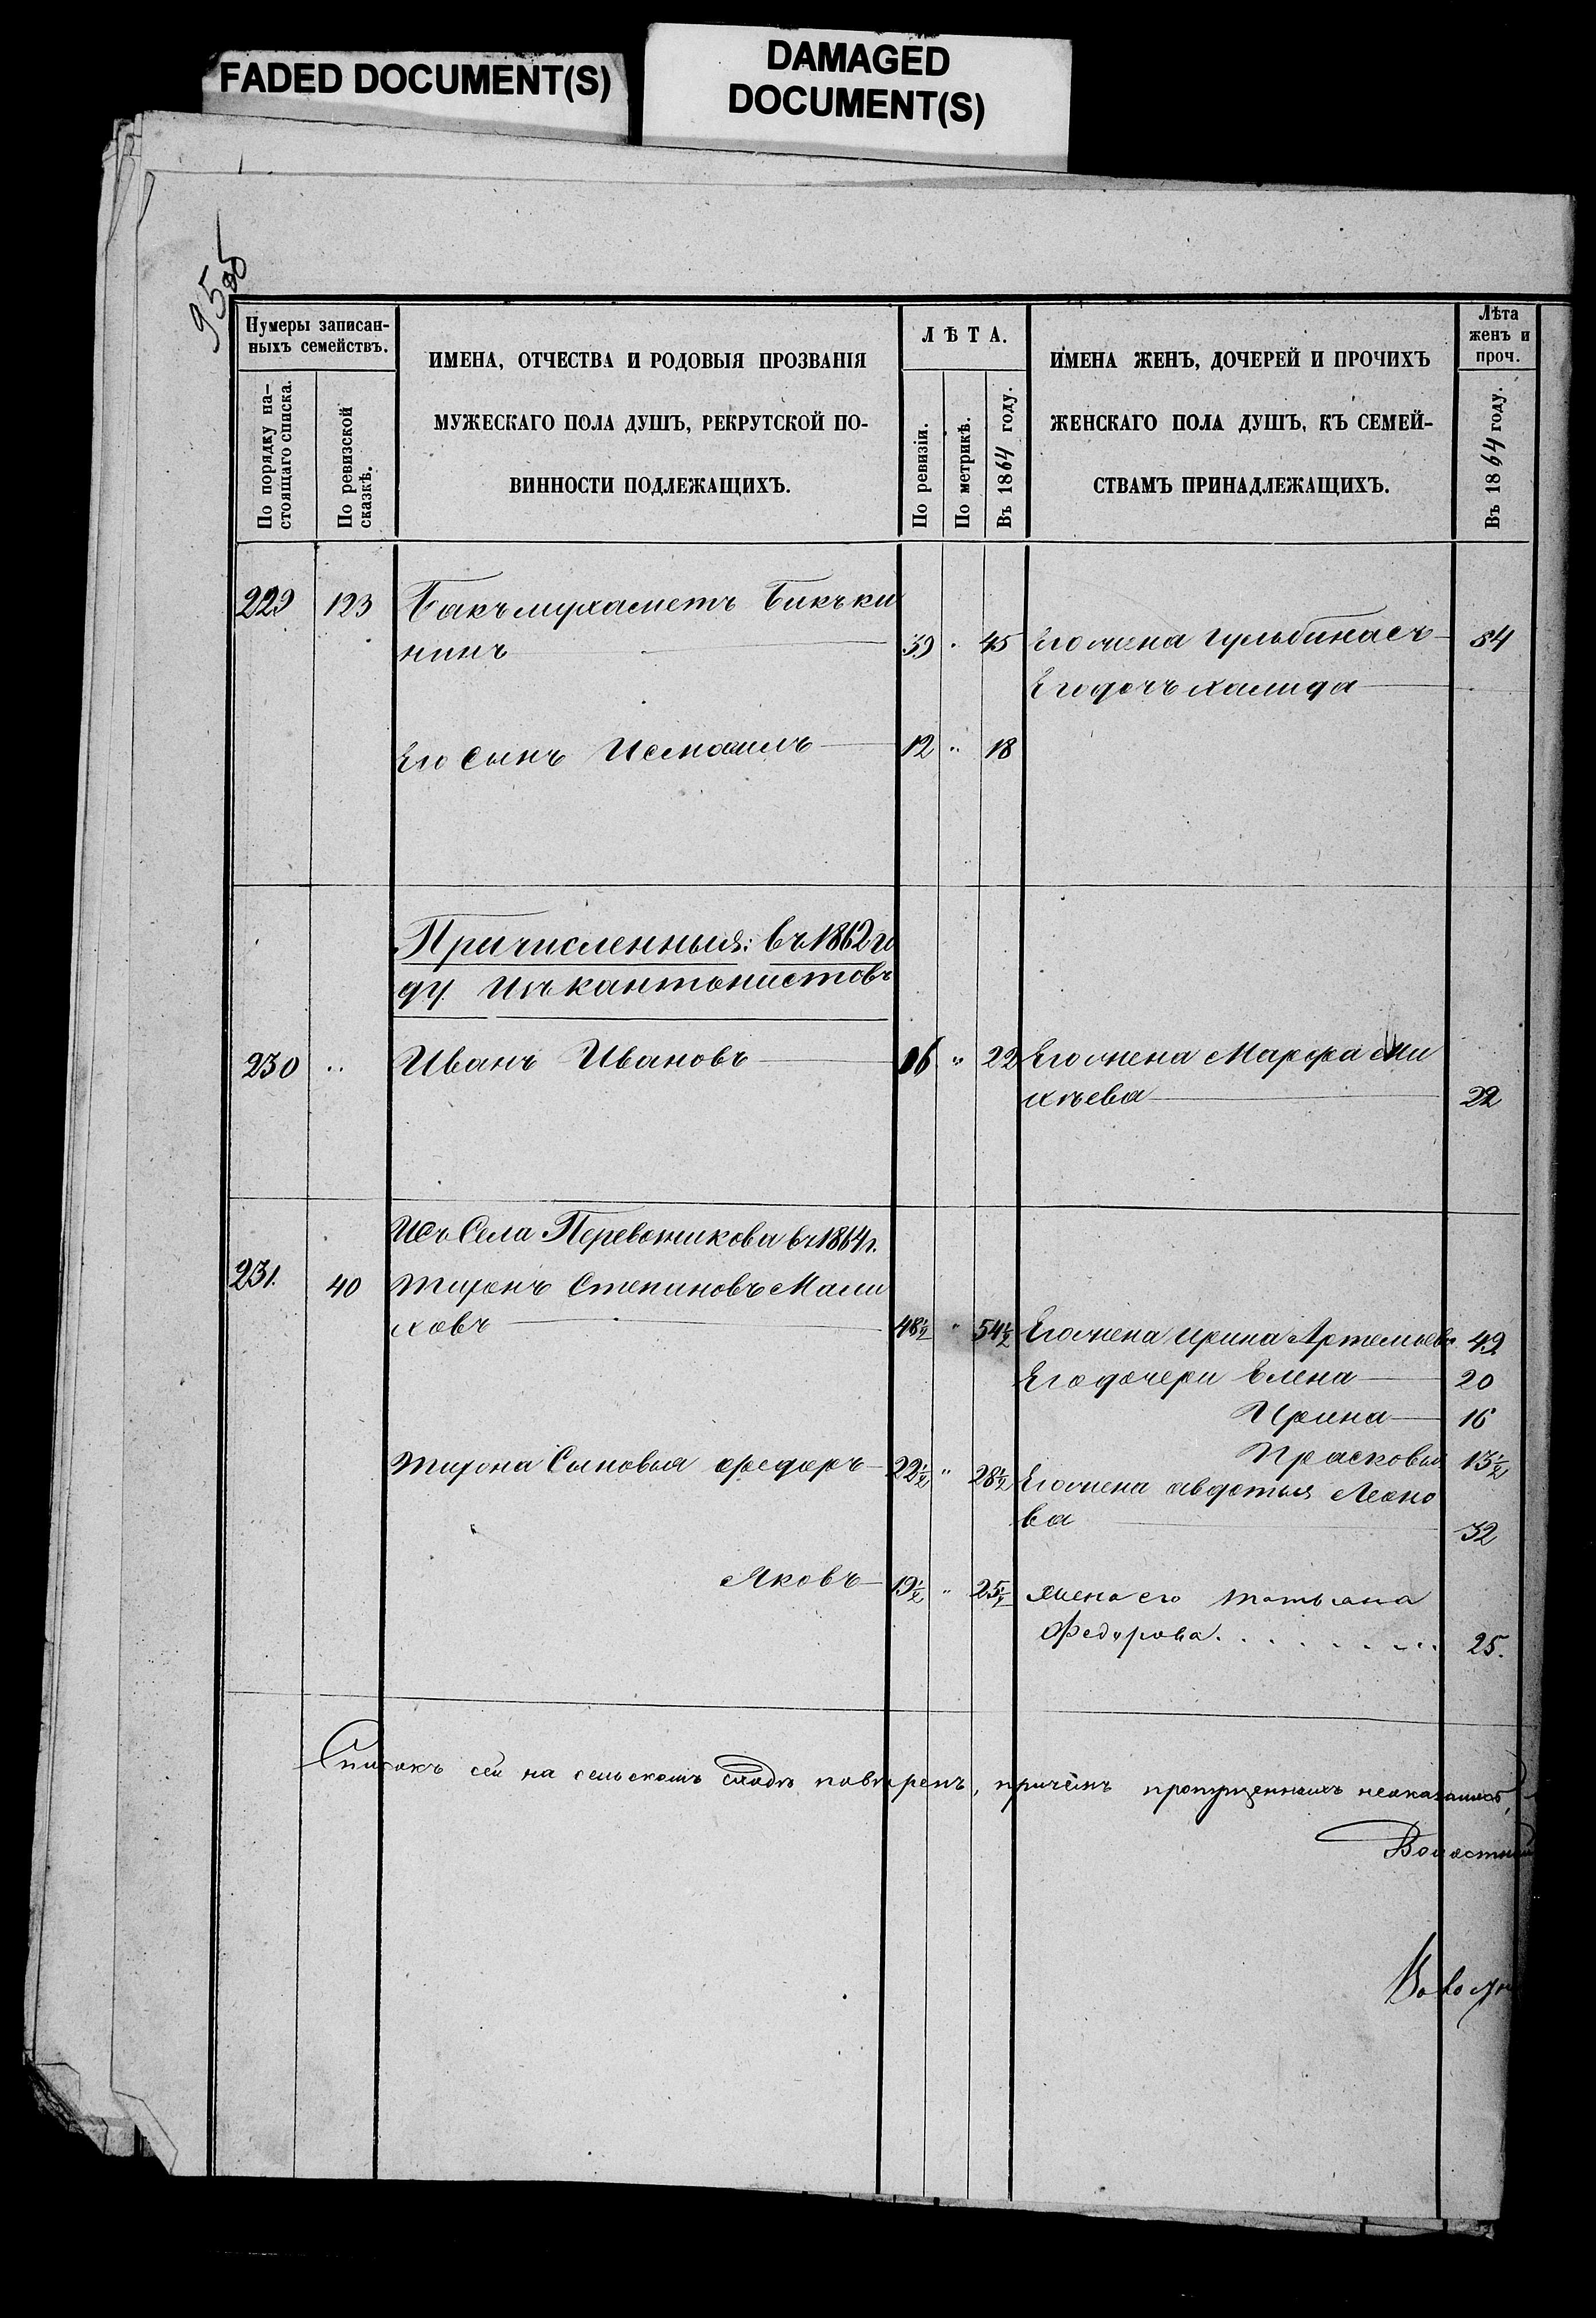 FADED DOCUMENT(S)
DAMAGED
DOCUMENT(S)
95
Нумеры записан-
ныхъ семействъ.
По порядку на-
стоящаго списка.
По ревизской
сказкѣ.
ИМЕНА, ОТЧЕСТВА И РОДОВЫЯ ПРОЗВАНІЯ
МУЖЕСКАГО ПОЛА ДУШЪ, РЕКРУТСКОЙ ПО-
ВИННОСТИ ПОДЛЕЖАЩИХЪ.
ЛѢТА.
По ревизіи.
По метрикѣ.
Въ 1864 году.
ИМЕНА ЖЕНЪ, ДОЧЕРЕЙ И ПРОЧИХЪ
ЖЕНСКАГО ПОЛА ДУШЪ, КЪ СЕМЕЙ-
СТВАМЪ ПРИНАДЛЕЖАЩИХЪ.
Лѣта
женъ и
проч.
Въ 1864 году.
229 123 Бакъмухаметъ Бикъки
нинъ 39 " 45 Его жена Гульбинасъ 54
Его дочь Халида
Его Сынъ Исмаилъ 12 " 18
Причисленныя: въ 1862 го
ду Изъ кантонистовъ
230 " Иванъ Ивановъ 16 " 22 Его жена Марфа Ми
хѣева 22
Изъ Села Перевозникова въ 1864 г.
231. 40 Тихонъ Степановъ Мали
ховъ 48½ " 54½ Его жена Ирина Артемьева 49
Его дочери Елена 20
Ирина 16
Прасковья 13½
Тихона Сыновья Федоръ 22½ " 28½ Его жена Авдотья Леоно
ва 32
Яковъ 19½ " 25½ жена его Татьяна
Федорова 25.
Списокъ сей на сельскомъ сходѣ повѣренъ, причемъ пропущенныхъ неоказалось,
Волостный